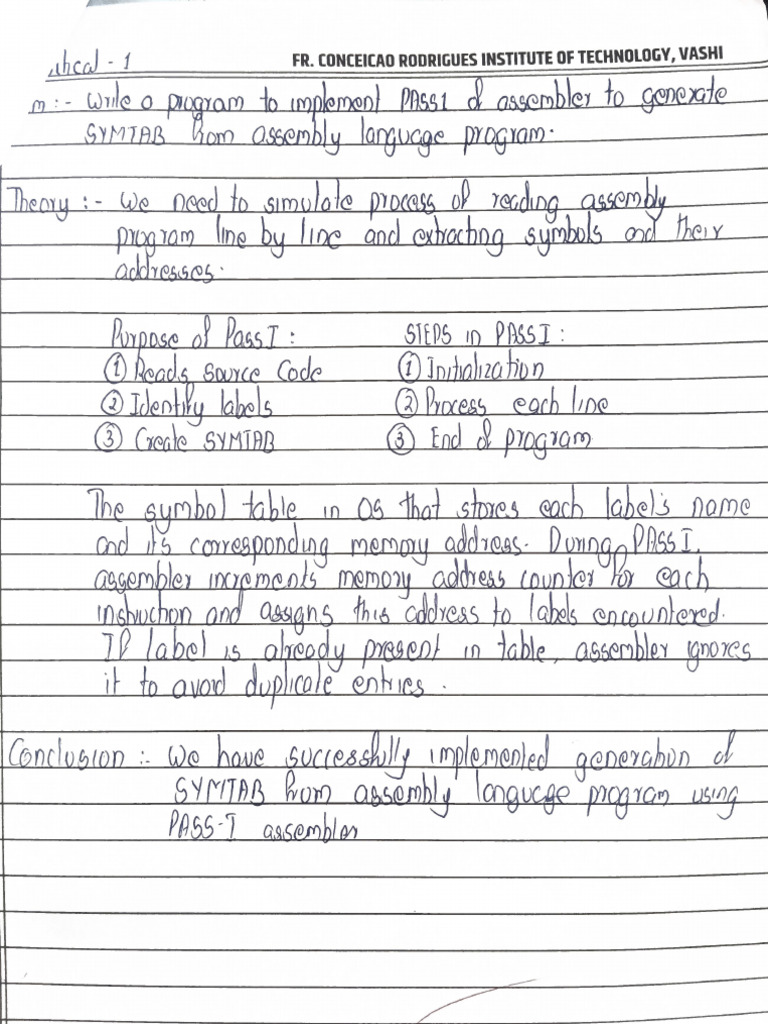 FR. CONCEICAO RODRIGUES INSTITUTE OF TECHNOLOGY, VASHI
- 1
m :- Write a program to implement PASS1 of assembler to generate
SYMTAB from assembly language program.
Theory :- We need to simulate process of reading assembly
program line by line and extracting symbols and their
addresses.
Purpose of Pass I :
① Reads Source Code
② Identify labels
③ Create SYMTAB
STEPS in PASS I :
① Initialization
② Process each line
③ End of program
The symbol table in OS that stores each label's name
and its corresponding memory address. During PASS I,
assembler increments memory address counter for each
instruction and assigns this address to labels encountered.
If label is already present in table, assembler ignores
it to avoid duplicate entries.
Conclusion :- We have successfully implemented generation of
SYMTAB from assembly language program using
PASS-I assembler